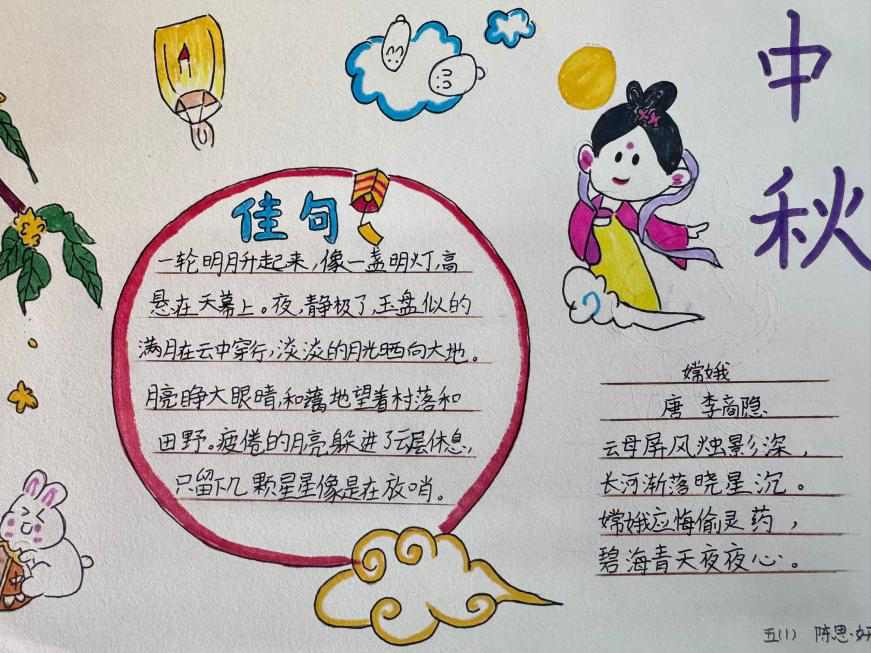 中秋
佳句
一轮明月升起来,像一盏明灯,高
悬在天幕上。夜,静极了,玉盘似的
满月在云中穿行,淡淡的月光晒向大地。
月亮睁大眼睛,和蔼地望着村落和
田野。疲倦的月亮躲进了云层休息,
只留下几颗星星像是在放哨。
嫦娥
唐 李商隐
云母屏风烛影深,
长河渐落晓星沉。
嫦娥应悔偷灵药,
碧海青天夜夜心。
五(1) 陈思妤